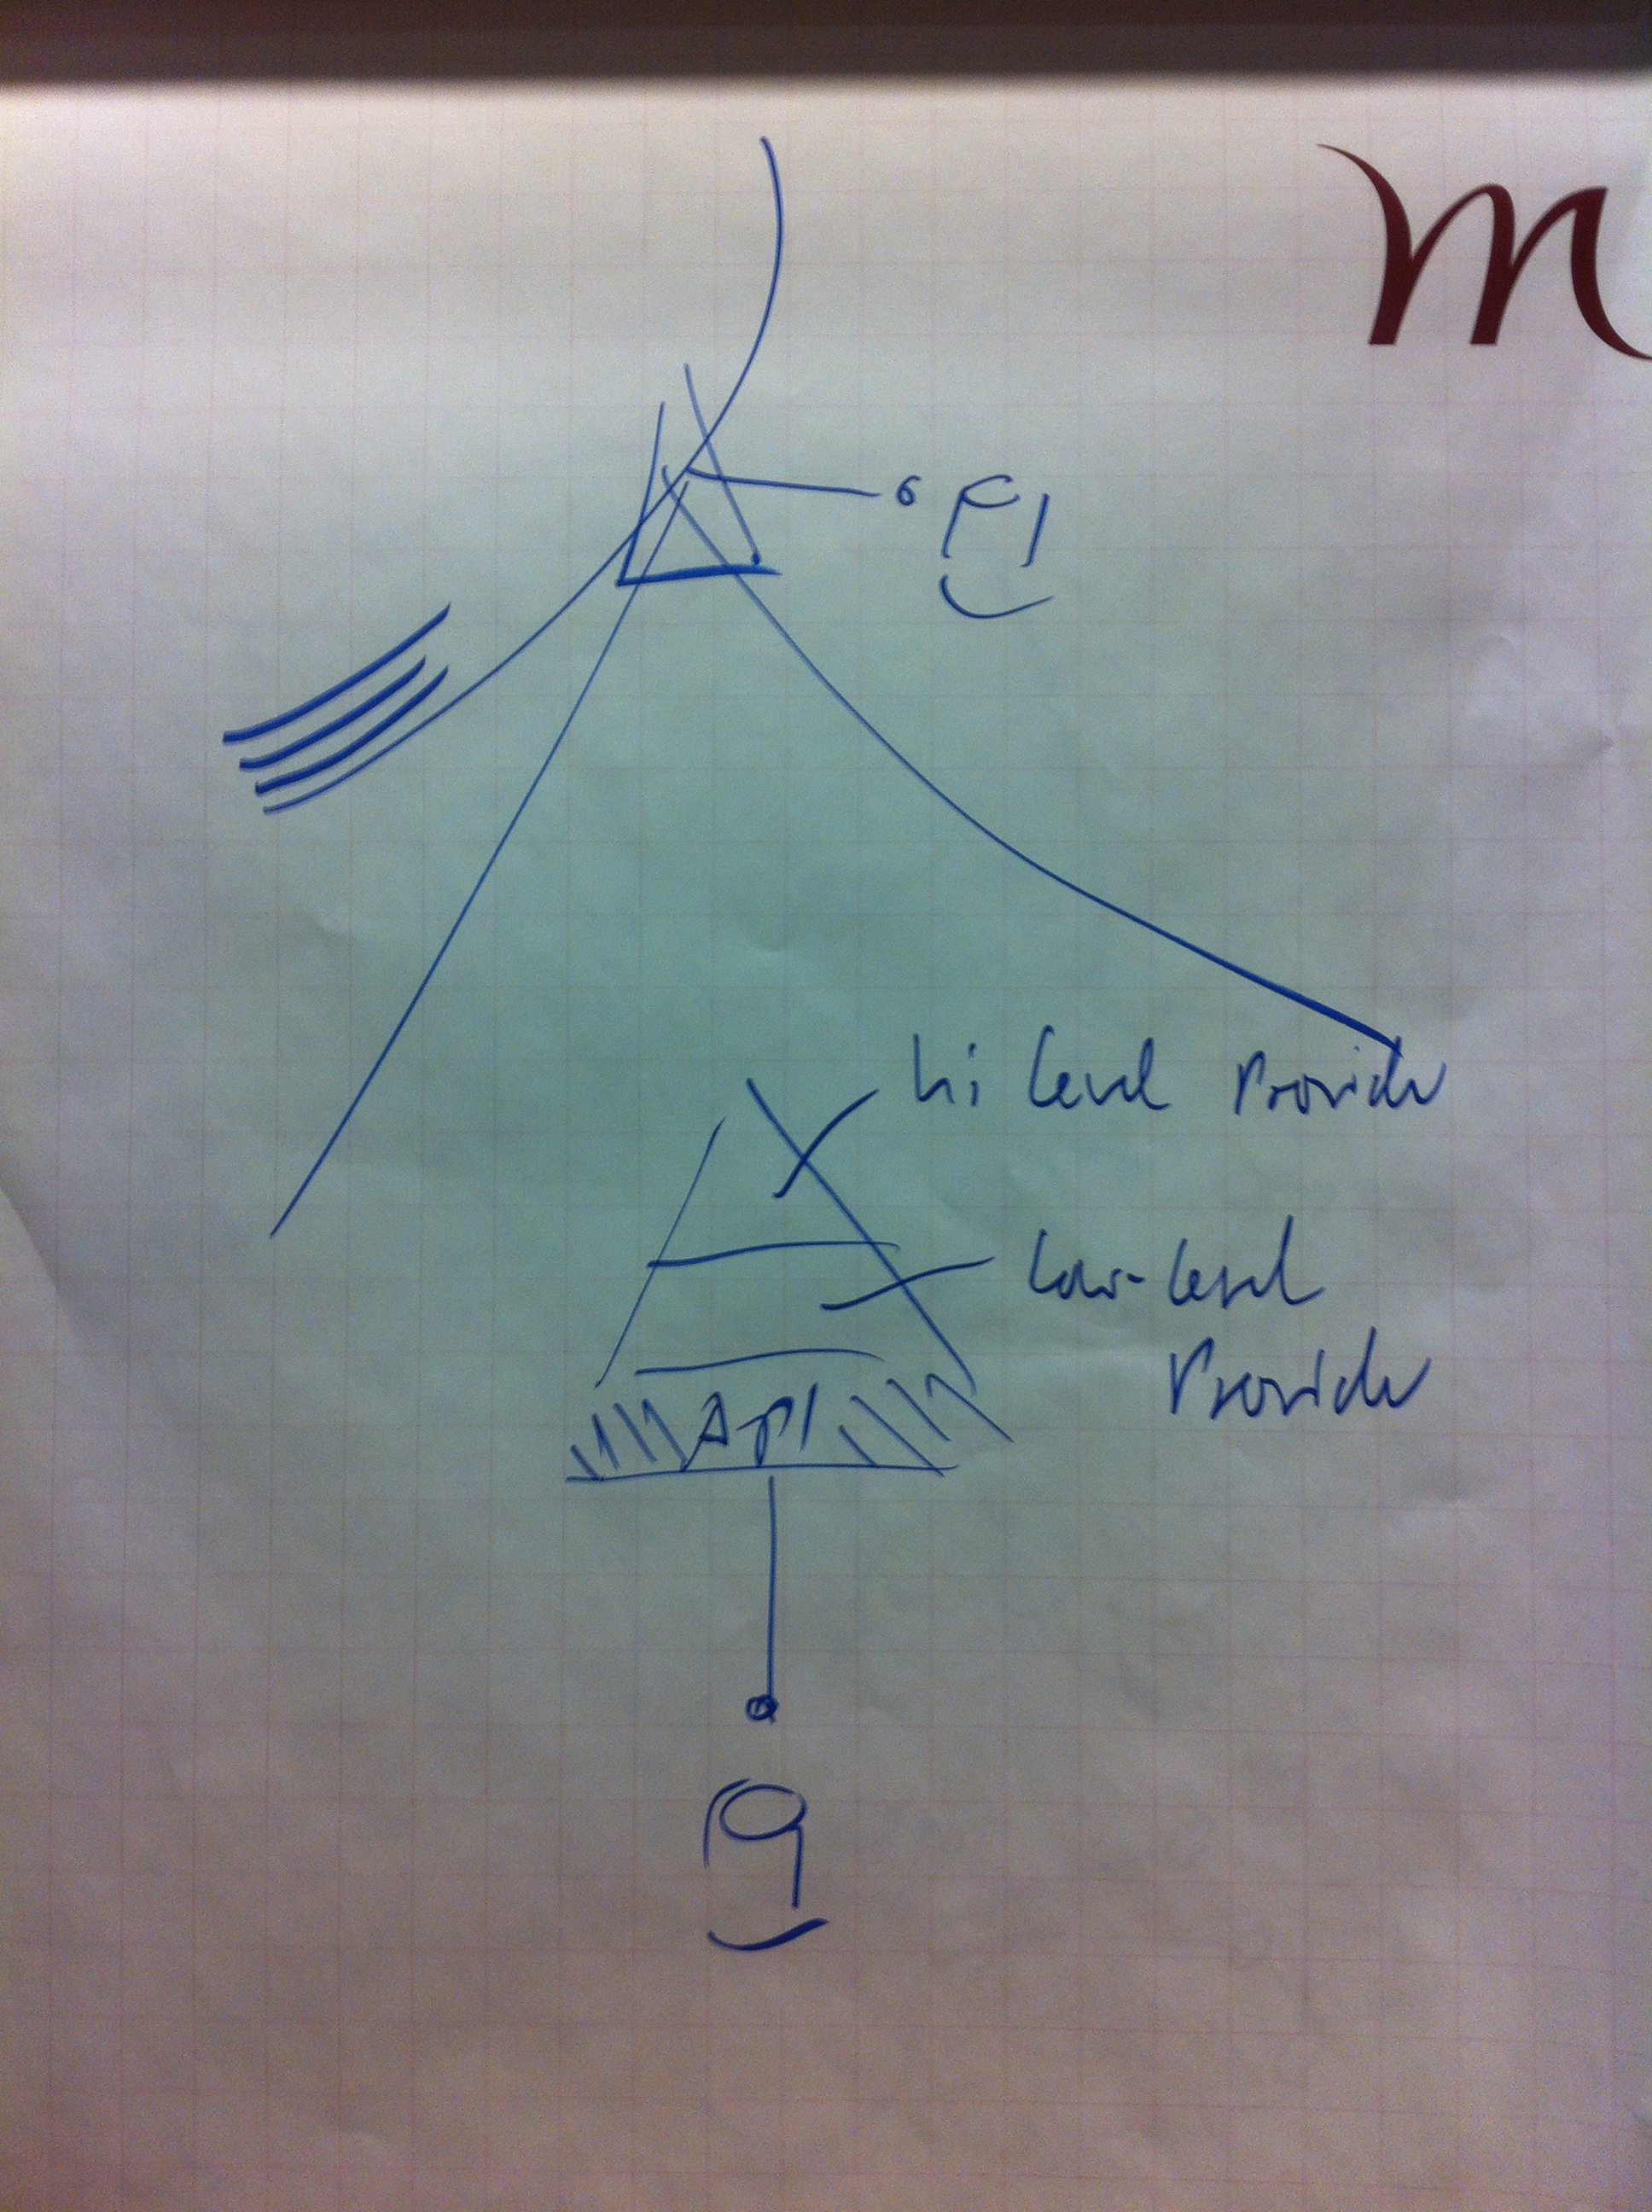 m
hi level Provider
low-level
Provider
API